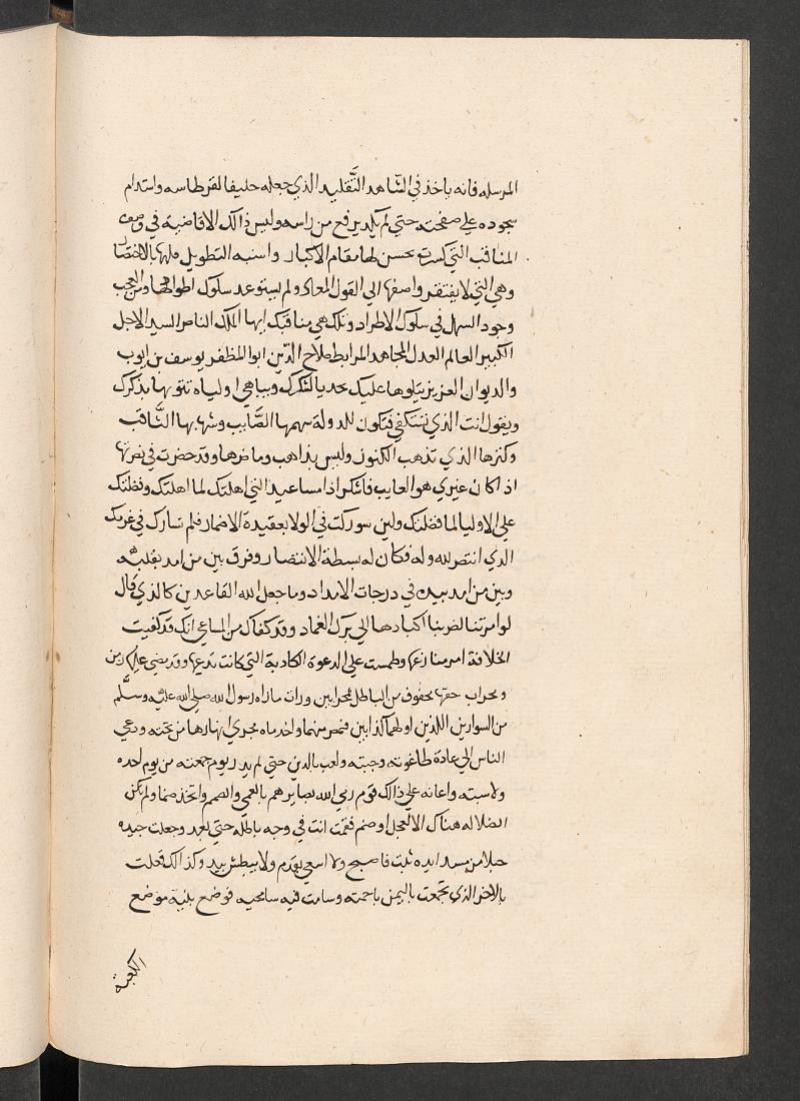 المرسله فانه ياخذ في انشاهد التَّقليد الذي جعله حليفا لقرطاسه واستدام
سجوده علي صفحته حتي لم يكد يرفع من راسه وليس ذالك الا فاضته في وصف
المناقب التي كثرت تحسن لها مقام الاكبار واشبه التطويل فيها بالاختصار
وهي التي لا يفتقر واصفها الي القول المعاد ولم يستوعد سلوك اطوادها ومن العجب
وجود السهل في سلوك الاطواد وتلك هي مناقبك ايها الملك الناصر السيد الاجل
الكبير العالم العدل المجاهد المرابط صلاح الدّين ابو المظفر يوسف بن ايوب
والديوان العزيز يتلوها عليك تحديا لشكرك ويباهي اولياه تنويها بذكرك
ويقول انت الذي تستكفي فتكون للدولة سهمها الصَّايب وشهابها الثَّاقب
وكنزها الذي تذهب الكنوز وليس بذاهب وما ضرها وقد حضرت في نصرتها
اذا كان غيري هو الغايب فاشكر اذا مساعيك التي اهلتك لما اهلتك وفضلتك
علي الاوليا لما فضلتك ولين شوركت في الولا بعقيدة الاضمار فلم تشارك في عزمك
الذي انتصر لله وله فكان له بسطة الانتصار وفرق بين من امد بقلبه
وبين من امد بيده في درجات الامداد وما جعل الله القاعدين كالذي قال
لو امرتنا لضربنا اكبادها الي برك الغماد وقد كفاك من المساعي انك قد كفيت
الخلافة امر منازعها وطمست علي الدعوة الكاذبة التي كانت تدعيها وقد مضي عليها زمن
ومحراب حقها محفوف من الباطل بمحرابين ورات ماراه رسول الله صلي الله عليه وسلَّم
من السوارين اللذين اولهما كذابين فمصر منهما واحد ماه مجري انهارها من تحته ودعي
الناس الي عبادة طاغوته وجبته ولعب بالدين حتي لم يدر يوم جمعته من يوم احده
ولا سبته واعانه علي ذالك قوم رمي الله بصايرهم بالعمي والصمم واتخذ صنما ولم تكن
الضلاله هناك الا لعجل او صنم فقمت انت في وجه باطله حتي لقعد وجعلت جيده
حبلا من مسد ايده تبت فاصبح ولا اسعي بقدم ولا يبطش بيد وكذالك فعلت
بالاخر الذي نجمعت باليمن ناجمته وسامت فيه سامحيه فوضع بلبة موضع
الكعبة